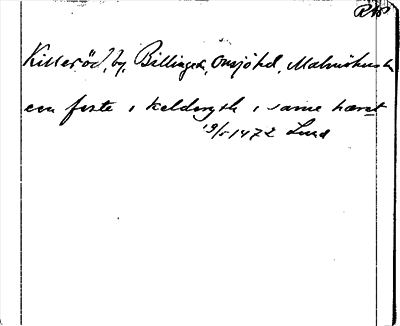 RAP
Killeröd, by, Billinge sn, Onsjö hd, Malmöhus län
een feste i Kelderyth i same hæret
19/5 1472 Lund